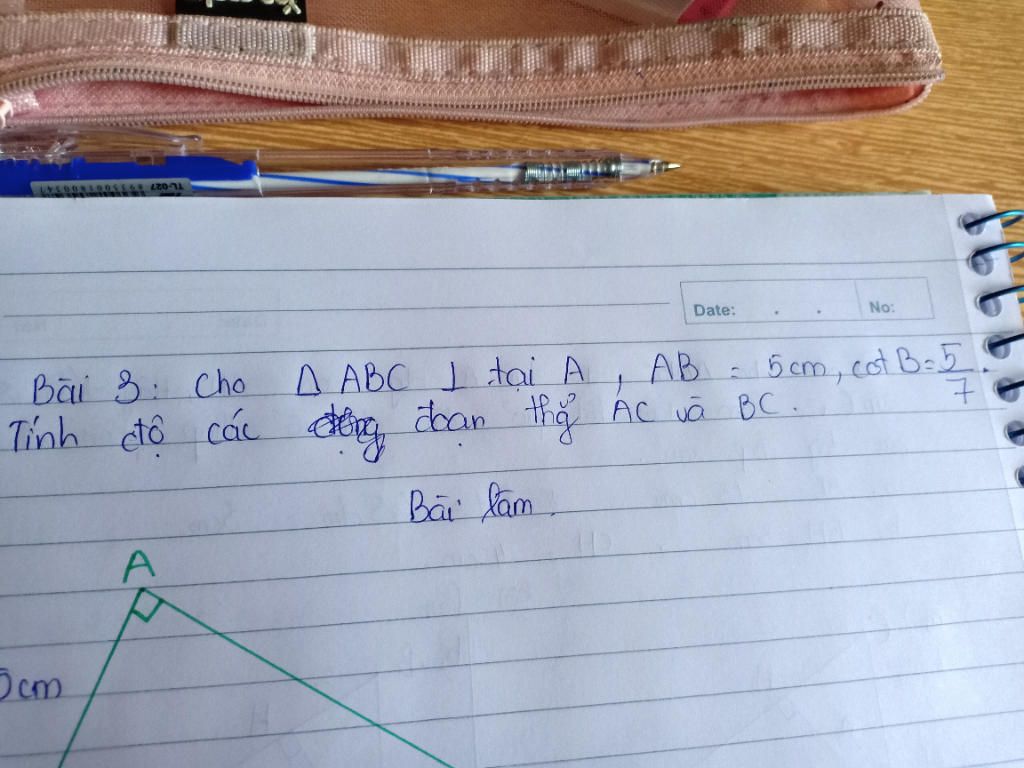 TL-027
8935001800347
Date: . . No:
Bài 3: Cho Δ ABC ⊥ tại A, AB = 5cm, cot B = 5/7.
Tính độ các đoạn thẳ AC và BC.
Bài làm.
A
5cm